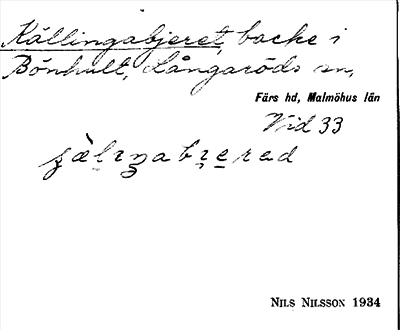 Källingabjeret, backe i
Bönhult, Långaröds sn,
Färs hd, Malmöhus län
Vid 33
NILS NILSSON 1934